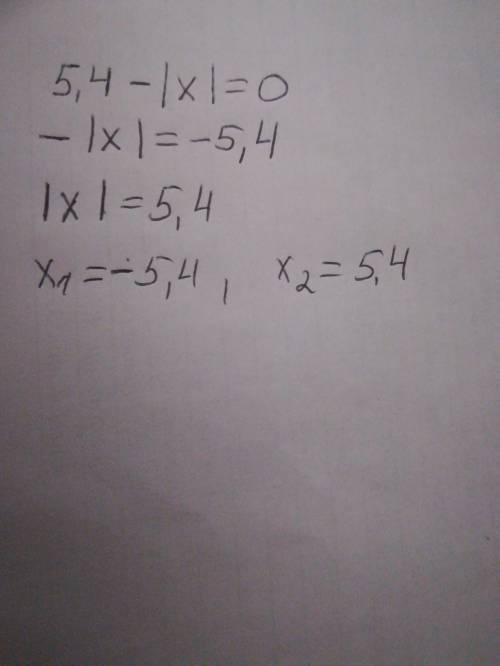 5,4 - |x| = 0
- |x| = -5,4
|x| = 5,4
x₁ = -5,4, x₂ = 5,4